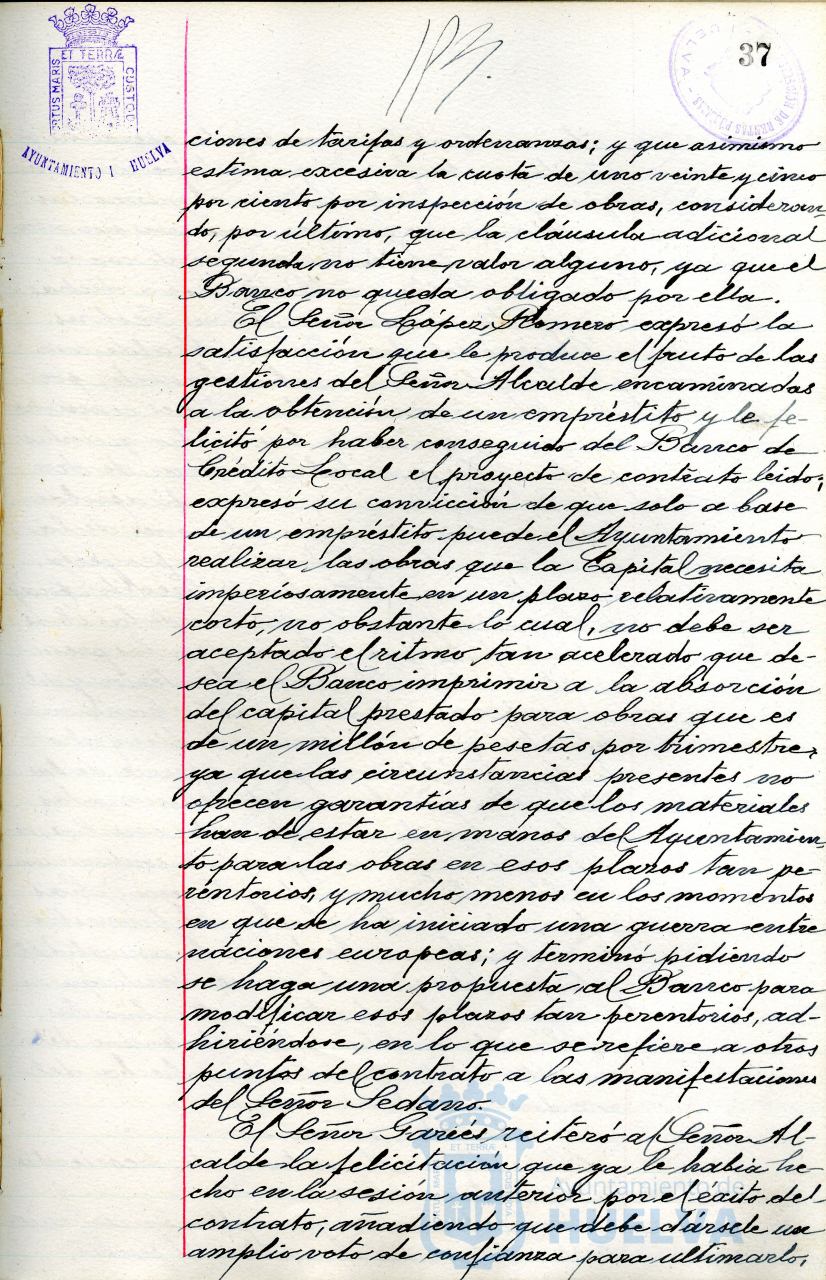 37
PORTUS MARIS ET TERRÆ CUSTODIA
AYUNTAMIENTO HUELVA
ciones de tarifas y ordenanzas; y que asimismo
estima excesiva la cuota de uno veinte y cinco
por ciento por inspección de obras, consideran-
do, por último, que la cláusula adicional
segunda no tiene valor alguno, ya que el
Banco no queda obligado por ella.
El Señor López Romero expresó la
satisfacción que le produce el fruto de las
gestiones del Señor Alcalde encaminadas
a la obtención de un empréstito y le fe-
licitó por haber conseguido del Banco de
Crédito Local el proyecto de contrato leido;
expresó su convicción de que solo a base
de un empréstito puede el Ayuntamiento
realizar las obras que la Capital necesita
imperiosamente en un plazo relativamente
corto, no obstante lo cual, no debe ser
aceptado el ritmo tan acelerado que de-
sea el Banco imprimir a la absorción
del capital prestado para obras que es
de un millón de pesetas por trimestre,
ya que las circunstancias presentes no
ofrecen garantías de que los materiales
han de estar en manos del Ayuntamien-
to para las obras en esos plazos tan pe-
rentorios, y mucho menos en los momentos
en que se ha iniciado una guerra entre
naciones europeas; y terminó pidiendo
se haga una propuesta al Banco para
modificar esos plazos tan perentorios, ad-
hiriéndose, en lo que se refiere a otros
puntos del contrato a las manifestaciones
del Señor Sedano.
El Señor Garcés reiteró al Señor Al-
calde la felicitación que ya le había he-
cho en la sesión anterior por el éxito del
contrato, añadiendo que debe dársele un
amplio voto de confianza para ultimarlo,
Ayuntamiento de
HUELVA